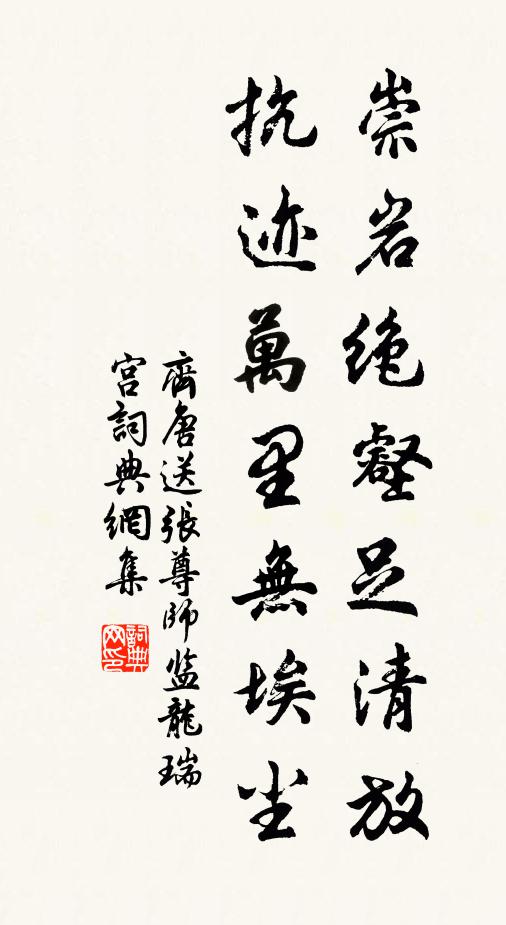 崇岩绝壑足清放
抗迹萬里無埃尘
齊唐送張尊師监龍瑞
宫詞典網集
詞典网印